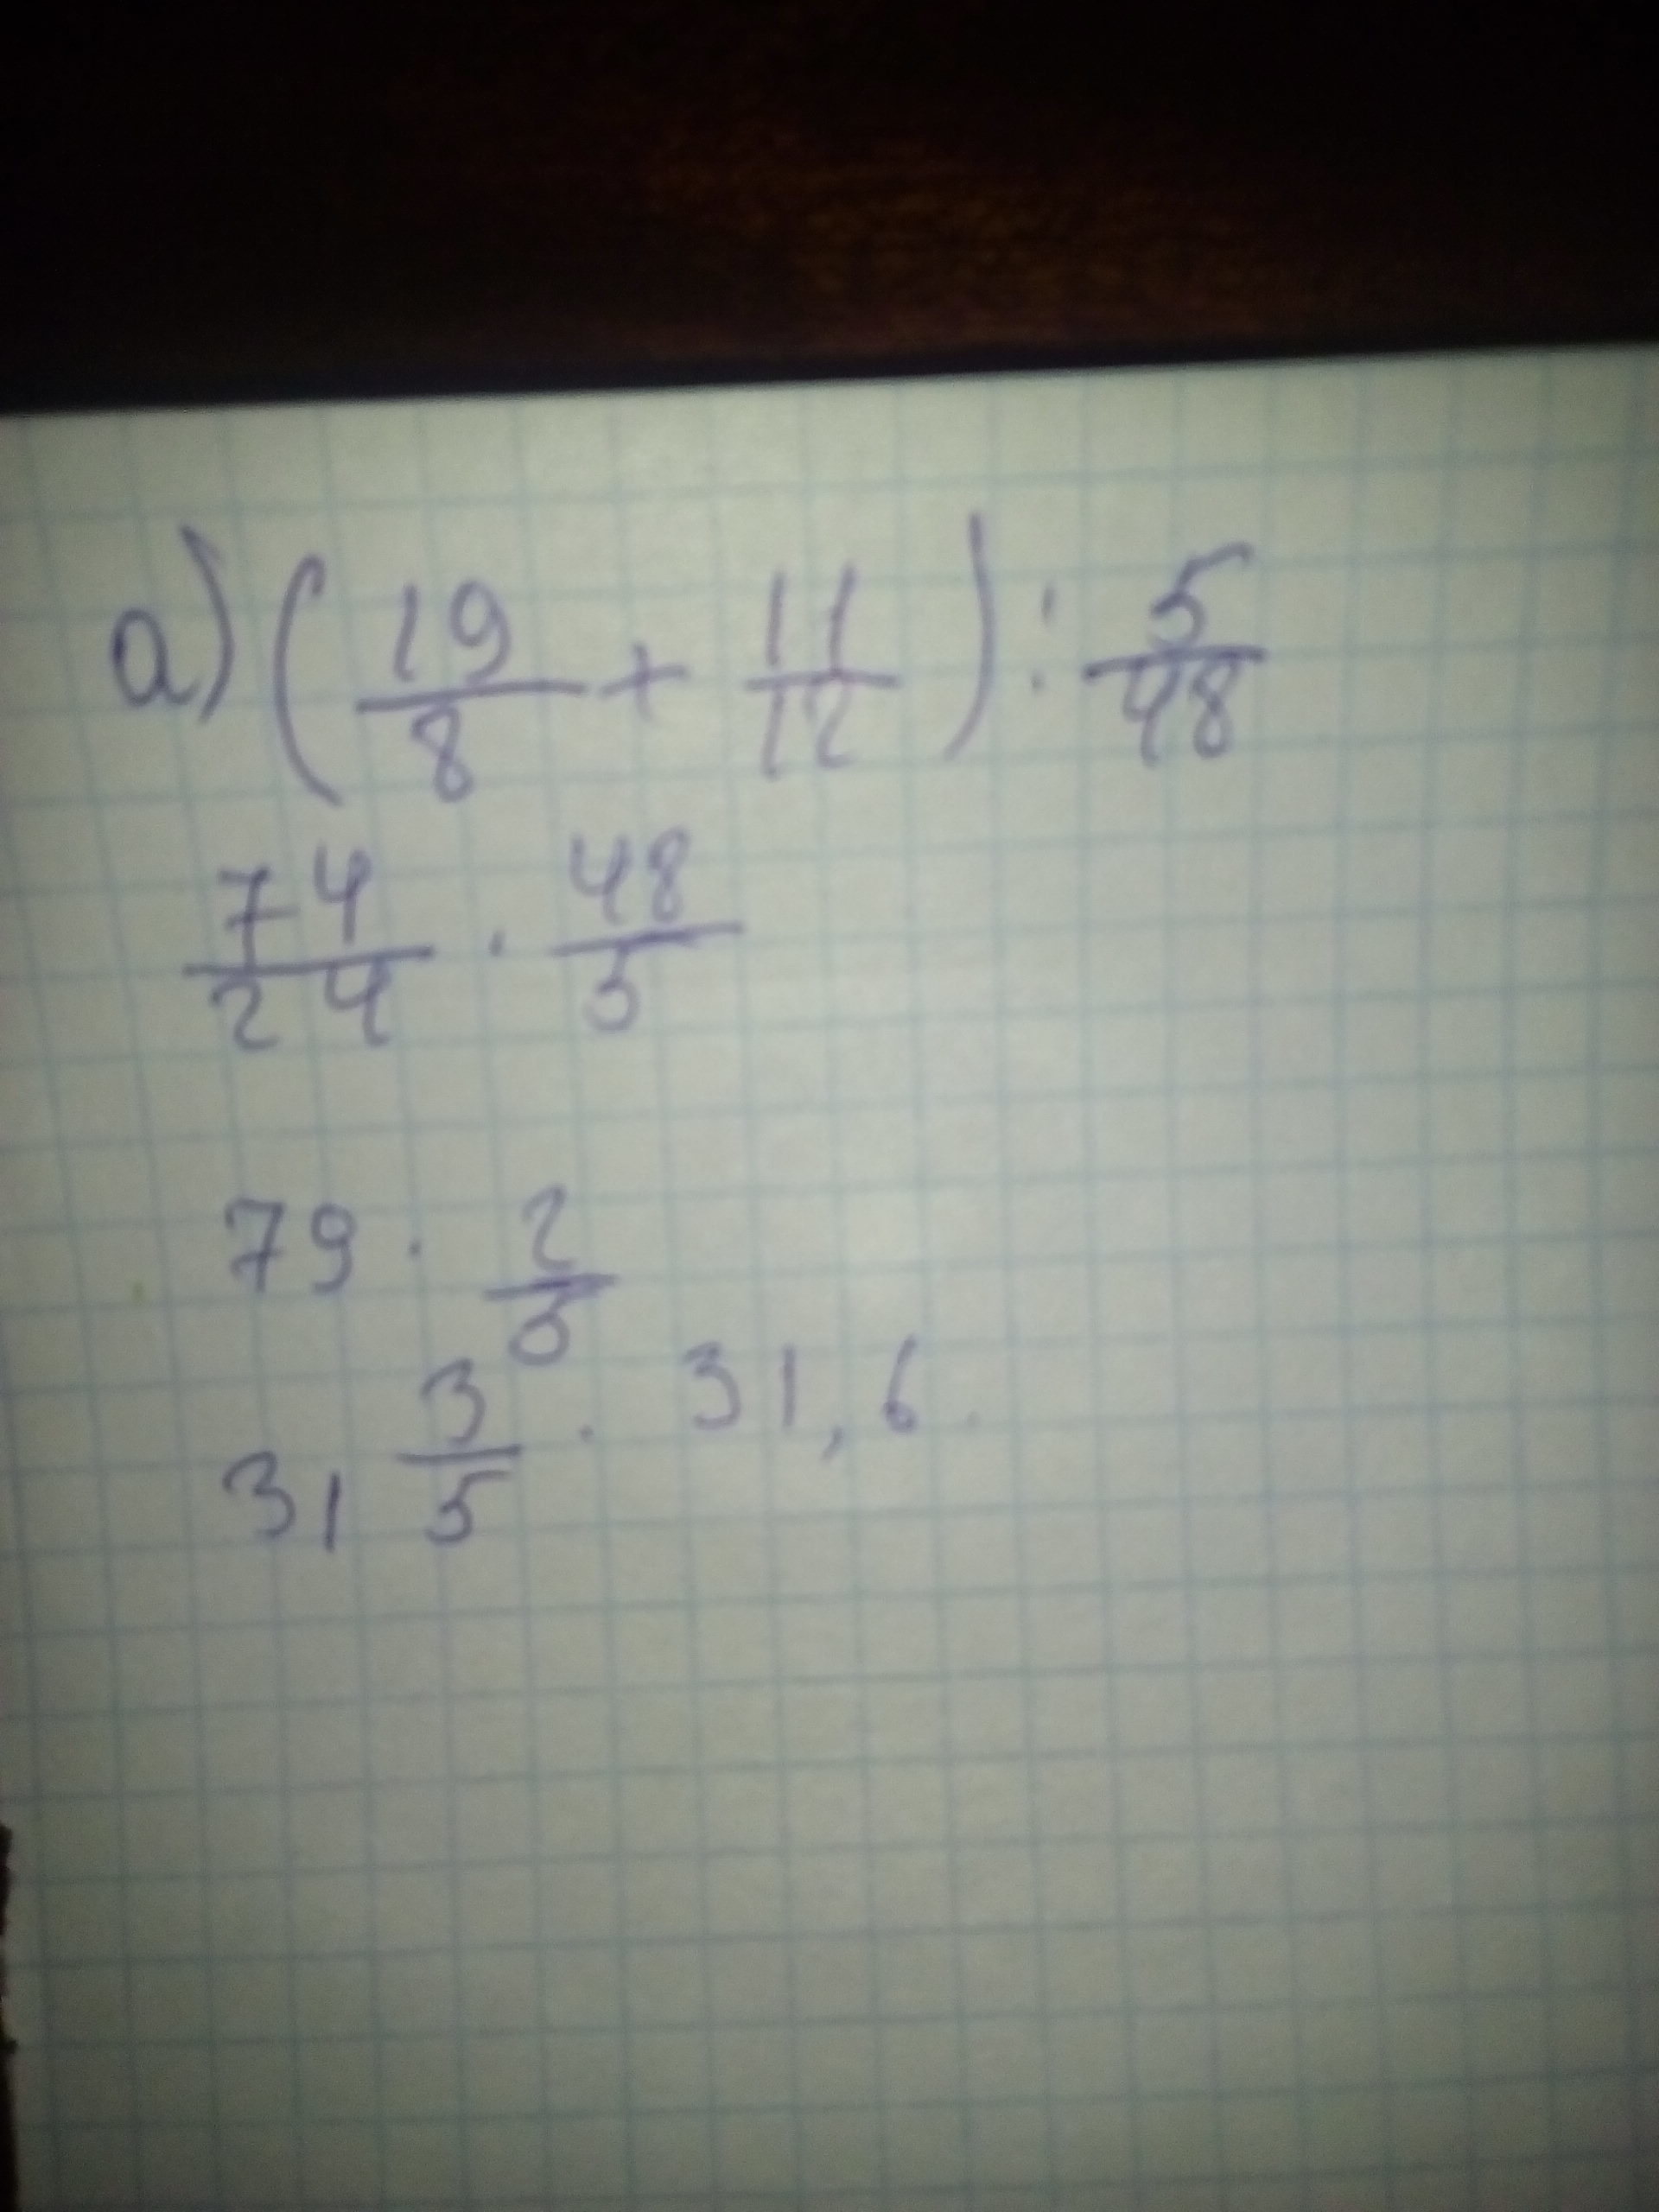 а) (19/8 + 11/12) : 5/48
74/24 · 48/5
79 · 2/5
31 3/5 . 31,6.